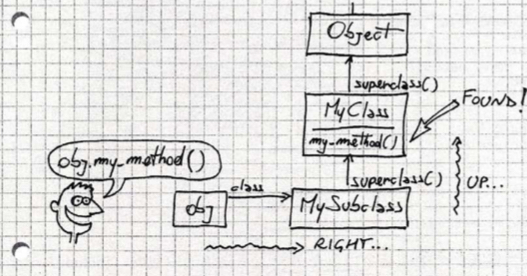 Object
superclass()
FOUND!
MyClass
my_method()
obj.my_method()
superclass()
UP...
class
obj
MySubclass
RIGHT...